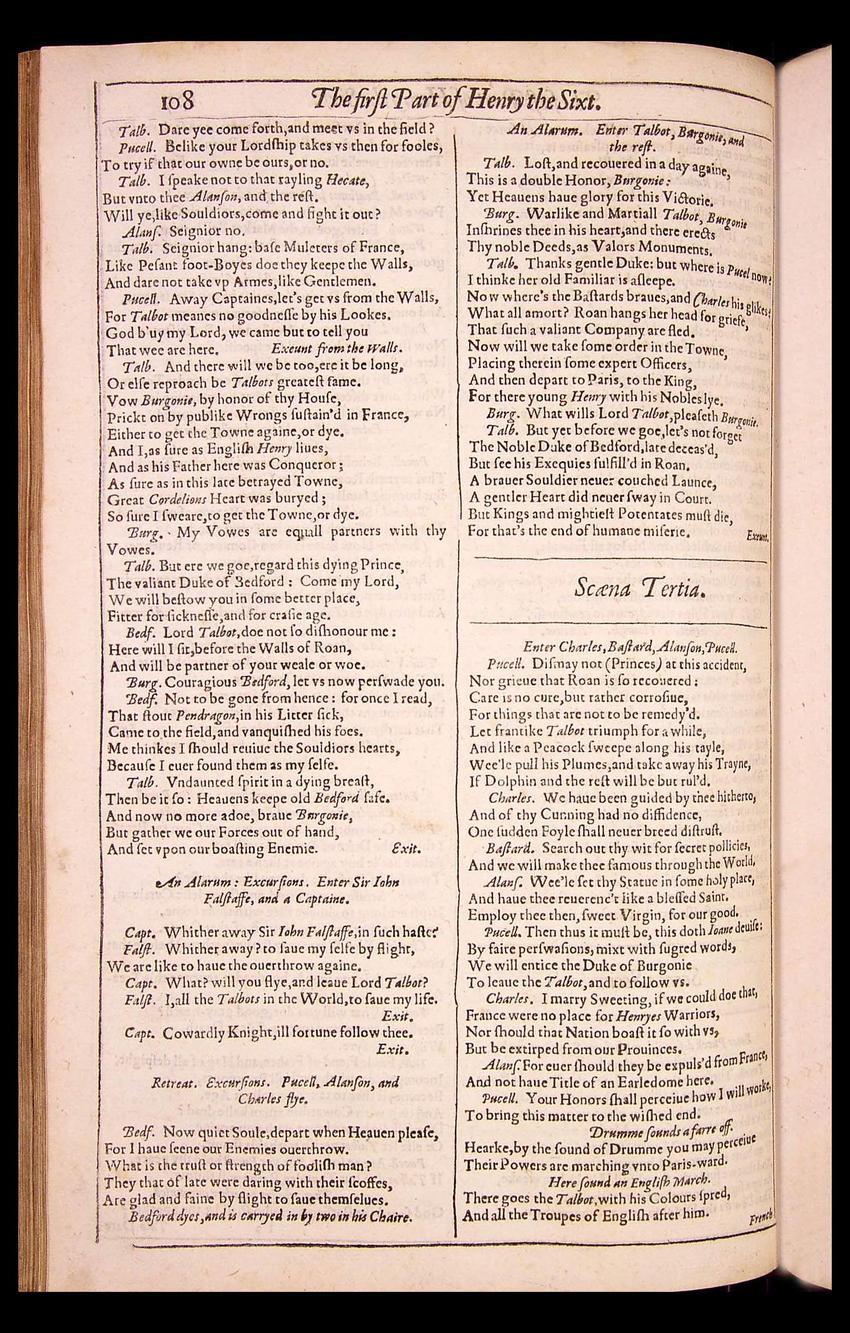 108
The first Part of Henry the Sixt.
Talb. Dare yee come forth,and meet vs in the field?
Pucell. Belike your Lordſhip takes vs then for fooles,
To try if that our owne be ours,or no.
Talb. I ſpeake not to that rayling Hecate,
But vnto thee Alanſon, and the reſt.
Will ye,like Souldiors,come and fight it out?
Alanſ. Seignior no.
Talb. Seignior hang: baſe Muleters of France,
Like Peſant foot-Boyes doe they keepe the Walls,
And dare not take vp Armes,like Gentlemen.
Pucell. Away Captaines,let's get vs from the Walls,
For Talbot meanes no goodneſſe by his Lookes.
God b'uy my Lord, we came but to tell you
That wee are here. Exeunt from the Walls.
Talb. And there will we be too,ere it be long,
Or elſe reproach be Talbots greateſt fame.
Vow Burgonie, by honor of thy Houſe,
Prickt on by publike Wrongs ſuſtain'd in France,
Either to get the Towne againe,or dye.
And I,as ſure as Engliſh Henry liues,
And as his Father here was Conqueror;
As ſure as in this late betrayed Towne,
Great Cordelions Heart was buryed;
So ſure I ſweare,to get the Towne,or dye.
Burg. My Vowes are equall partners with thy
Vowes.
Talb. But ere we goe,regard this dying Prince,
The valiant Duke of Bedford: Come my Lord,
We will beſtow you in ſome better place,
Fitter for ſickneſſe,and for craſie age.
Bedf. Lord Talbot,doe not ſo diſhonour me:
Here will I ſit,before the Walls of Roan,
And will be partner of your weale or woe.
Burg. Couragious Bedford, let vs now perſwade you.
Bedf. Not to be gone from hence: for once I read,
That ſtout Pendragon,in his Litter ſick,
Came to the field,and vanquiſhed his foes.
Me thinkes I ſhould reuiue the Souldiors hearts,
Becauſe I euer found them as my ſelfe.
Talb. Vndaunted ſpirit in a dying breaſt,
Then be it ſo: Heauens keepe old Bedford ſafe.
And now no more adoe, braue Burgonie,
But gather we our Forces out of hand,
And ſet vpon our boaſting Enemie. Exit.
An Alarum: Excurſions. Enter Sir Iohn
Falſtaffe, and a Captaine.
Capt. Whither away Sir Iohn Falſtaffe,in ſuch haſte?
Falſt. Whither away? to ſaue my ſelfe by flight,
We are like to haue the ouerthrow againe.
Capt. What? will you flye,and leaue Lord Talbot?
Falſt. I,all the Talbots in the World,to ſaue my life.
Exit.
Capt. Cowardly Knight,ill fortune follow thee.
Exit.
Retreat. Excurſions. Pucell, Alanſon, and
Charles flye.
Bedf. Now quiet Soule,depart when Heauen pleaſe,
For I haue ſeene our Enemies ouerthrow.
What is the truſt or ſtrength of fooliſh man?
They that of late were daring with their ſcoffes,
Are glad and faine by flight to ſaue themſelues.
Bedford dyes,and is carryed in by two in his Chaire.
An Alarum. Enter Talbot, Burgonie, and
the reſt.
Talb. Loſt,and recouered in a day againe,
This is a double Honor, Burgonie:
Yet Heauens haue glory for this Victorie.
Burg. Warlike and Martiall Talbot, Burgonie
Inſhrines thee in his heart,and there erects
Thy noble Deeds,as Valors Monuments.
Talb. Thanks gentle Duke: but where is Pucel now?
I thinke her old Familiar is aſleepe.
Now where's the Baſtards braues,and Charles his glikes?
What all amort? Roan hangs her head for griefe,
That ſuch a valiant Company are fled.
Now will we take ſome order in the Towne,
Placing therein ſome expert Officers,
And then depart to Paris, to the King,
For there young Henry with his Nobles lye.
Burg. What wills Lord Talbot,pleaſeth Burgonie.
Talb. But yet before we goe,let's not forget
The Noble Duke of Bedford,late deceas'd,
But ſee his Exequies fulfill'd in Roan.
A brauer Souldier neuer couched Launce,
A gentler Heart did neuer ſway in Court.
But Kings and mightieſt Potentates muſt die,
For that's the end of humane miſerie. Exeunt.
Scæna Tertia.
Enter Charles, Baſtard, Alanſon, Pucell.
Pucell. Diſmay not (Princes) at this accident,
Nor grieue that Roan is ſo recouered:
Care is no cure,but rather corroſiue,
For things that are not to be remedy'd.
Let frantike Talbot triumph for a while,
And like a Peacock ſweepe along his tayle,
Wee'le pull his Plumes,and take away his Trayne,
If Dolphin and the reſt will be but rul'd.
Charles. We haue been guided by thee hitherto,
And of thy Cunning had no diffidence,
One ſudden Foyle ſhall neuer breed diſtruſt.
Baſtard. Search out thy wit for ſecret pollicies,
And we will make thee famous through the World.
Alanſ. Wee'le ſet thy Statue in ſome holy place,
And haue thee reuerenc't like a bleſſed Saint.
Employ thee then,ſweet Virgin, for our good.
Pucell. Then thus it muſt be, this doth Ioane deuiſe:
By faire perſwaſions, mixt with ſugred words,
We will entice the Duke of Burgonie
To leaue the Talbot,and to follow vs.
Charles. I marry Sweeting, if we could doe that,
France were no place for Henryes Warriors,
Nor ſhould that Nation boaſt it ſo with vs,
But be extirped from our Prouinces.
Alanſ. For euer ſhould they be expuls'd from France,
And not haue Title of an Earledome here.
Pucell. Your Honors ſhall perceiue how I will worke,
To bring this matter to the wiſhed end.
Drumme ſounds a farre off.
Hearke,by the ſound of Drumme you may perceiue
Their Powers are marching vnto Paris-ward.
Here ſound an Engliſh March.
There goes the Talbot,with his Colours ſpred,
And all the Troupes of Engliſh after him.
French